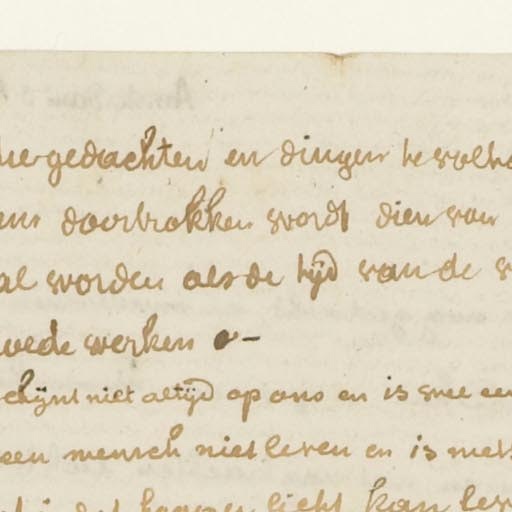 gedachten en dingen te
doortrokken wordt dien van
al worden als de tijd van de
werken
chijnt niet altijd op ons en is
een mensch niet leven en is
licht kan